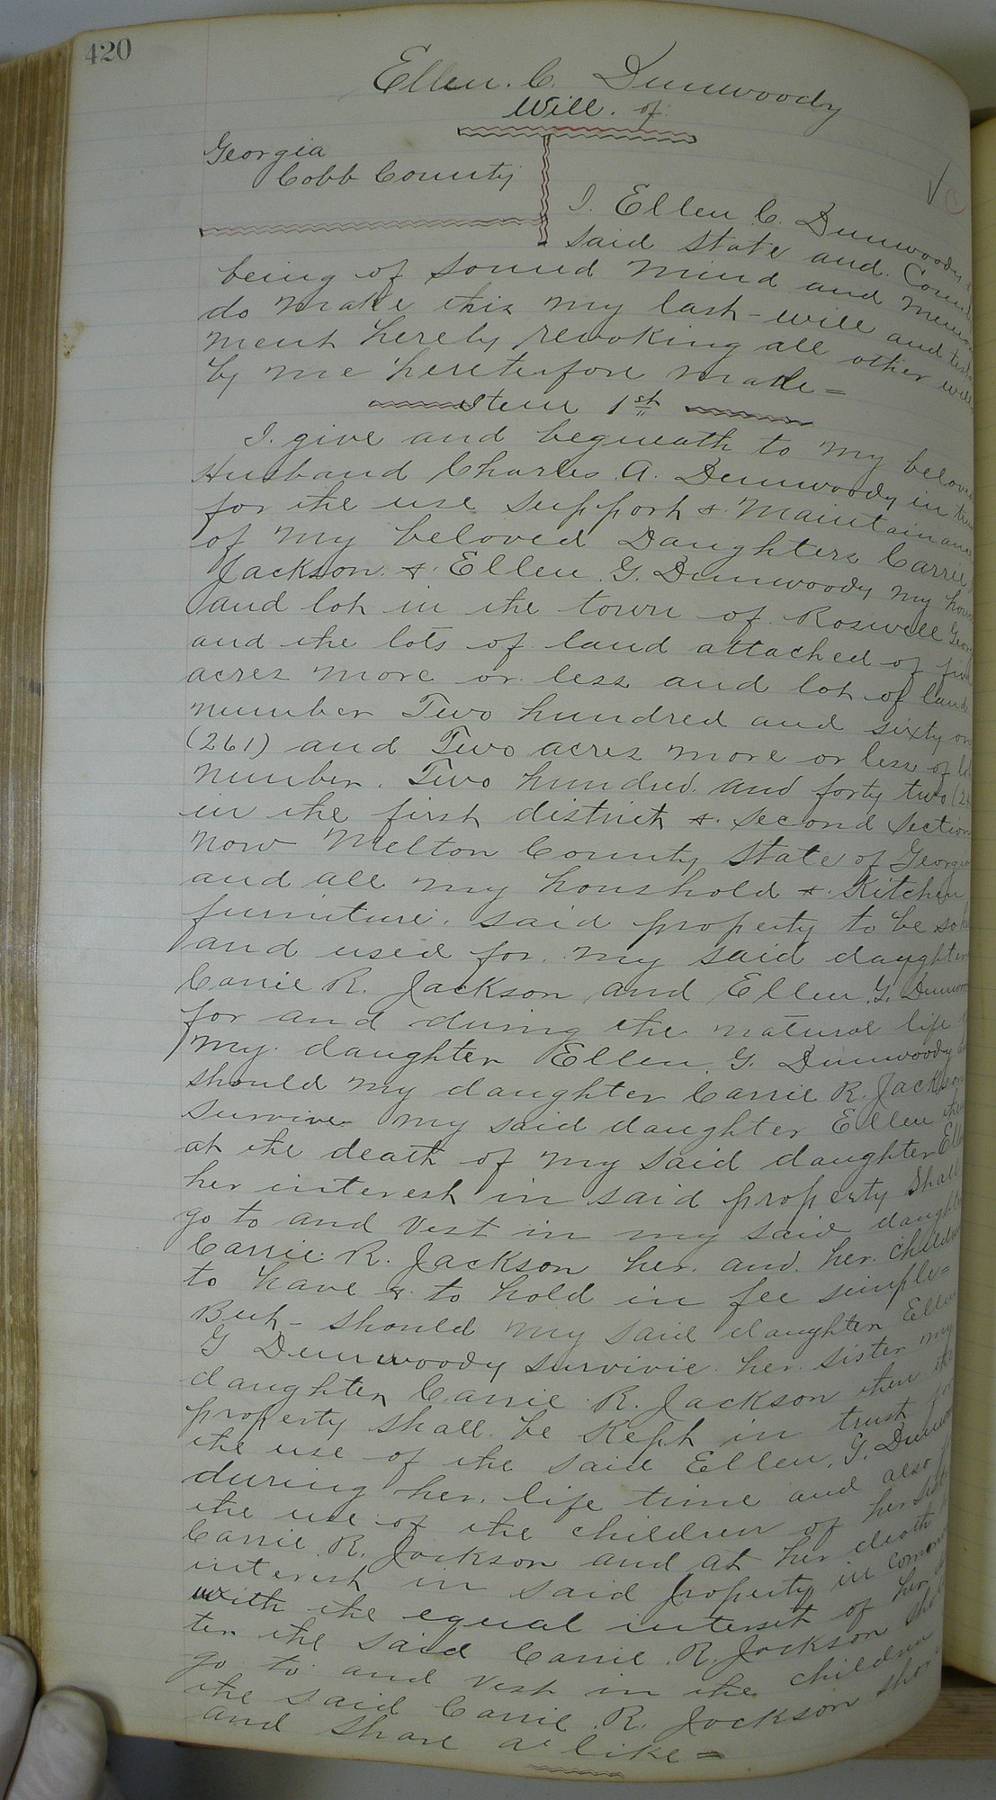 420
Ellen. C. Dunwoody
Will. of
Georgia
Cobb County
I. Ellen C. Dunwoody
said State and. County
being of sound mind and
do make this my last-will and
ment hereby revoking all other will
by me heretofore made=
Item 1st
I. give and bequeath to my beloved
Husband Charles A. Dunwoody in
for the use support & Maintainance
of my beloved Daughters Carrie
Jackson. & Ellen. G. Dunwoody my house
and lot in the town of Roswell
and the lots of land attached of
acres more or less and lot of land
number Two hundred and sixty one
(261) and Two acres more or less of lot
number. Two hundred and forty two
in the first district & second section
now Melton County State of Georgia
and all my houshold & Kitchen
furniture. said property to be so
and used for. my said daughters
Carrie R. Jackson and Ellen G.
for and during the natural life
my daughter Ellen G. Dunwoody
should my daughter Carrie R. Jackson
survive my said daughter Ellen then
at the death of my said daughter Ellen
her interest in said property shall
go to and vest in my said daughter
Carrie R. Jackson her and her children
to have & to hold in fee simple=
But- should my said daughter Ellen
G Dunwoody survivie her sister my
daughter Carrie R. Jackson then the
property shall be Kept in trust for
the use of the said Ellen. G.
during her life time and also
the use of the children of her
Carrie R. Jackson and at her death
interest in said property in common
with the equal interest of her
ter the said Carrie R. Jackson shall
go to and vest in the children
the said Carrie R. Jackson
and share a like=